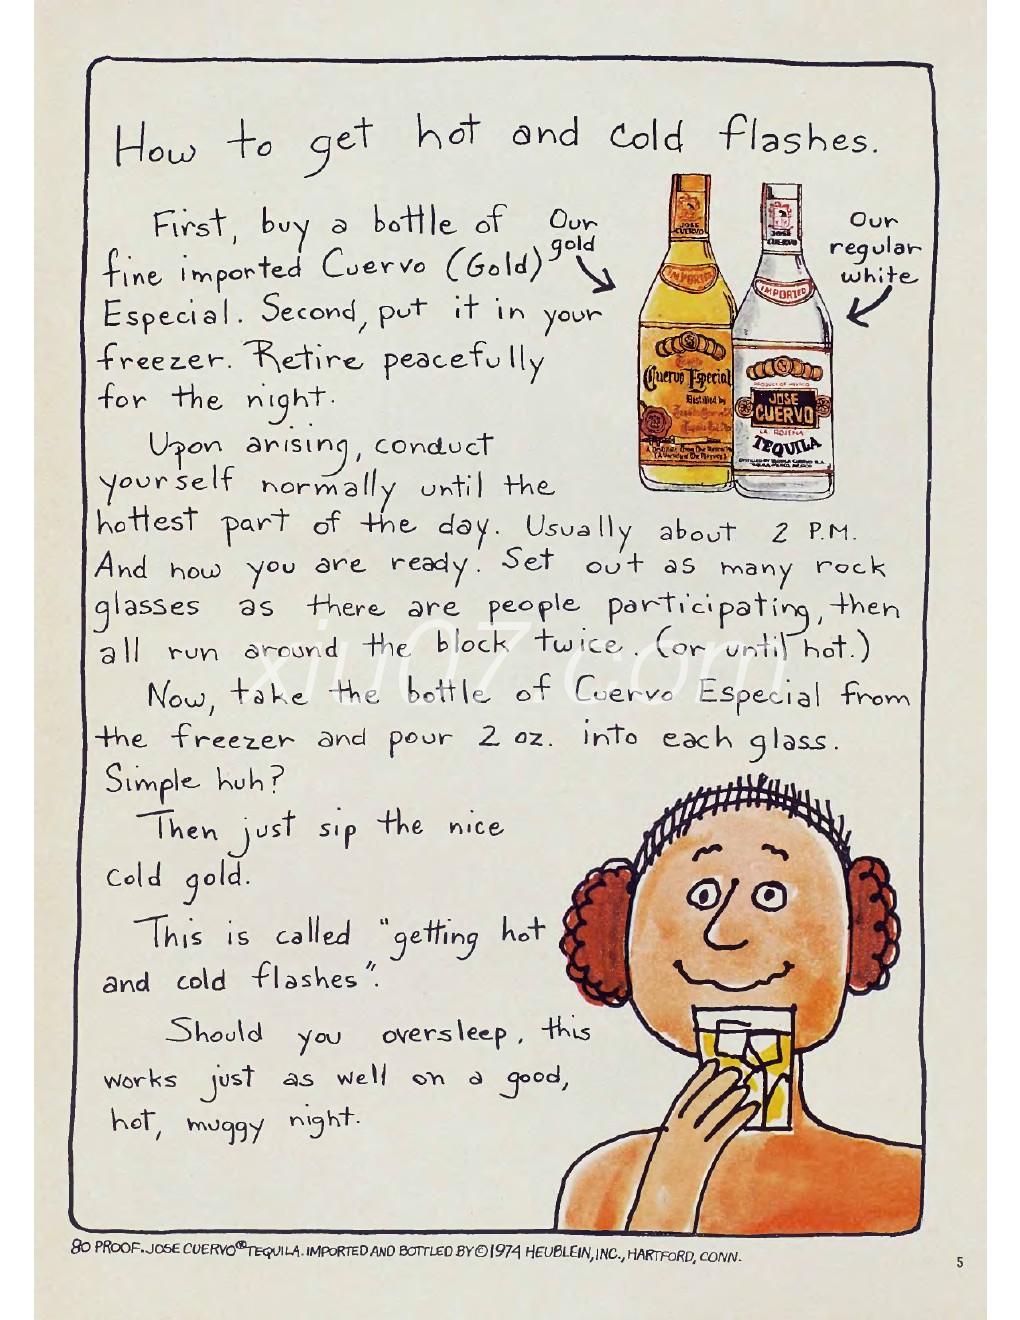 How to get hot and cold flashes.
First, buy a bottle of
fine imported Cuervo (Gold)
Especial. Second, put it in your
freezer. Retire peacefully
for the night.
Our
gold
Our
regular
white
JOSE
CUERVO
IMPORTED
Cuervo Especial
Distilled by
JOSE
CUERVO
IMPORTED
PRODUCT OF MEXICO
JOSE
CUERVO
LA ROJEÑA
TEQUILA
Upon arising, conduct
yourself normally until the
hottest part of the day. Usually about 2 P.M.
And now you are ready. Set out as many rock
glasses as there are people participating, then
all run around the block twice. (or until hot.)
xiu07.com
Now, take the bottle of Cuervo Especial from
the freezer and pour 2 oz. into each glass.
Simple huh?
Then just sip the nice
cold gold.
This is called "getting hot
and cold flashes".
Should you oversleep, this
works just as well on a good,
hot, muggy night.
80 PROOF. JOSE CUERVO® TEQUILA. IMPORTED AND BOTTLED BY © 1974 HEUBLEIN, INC., HARTFORD, CONN.
5